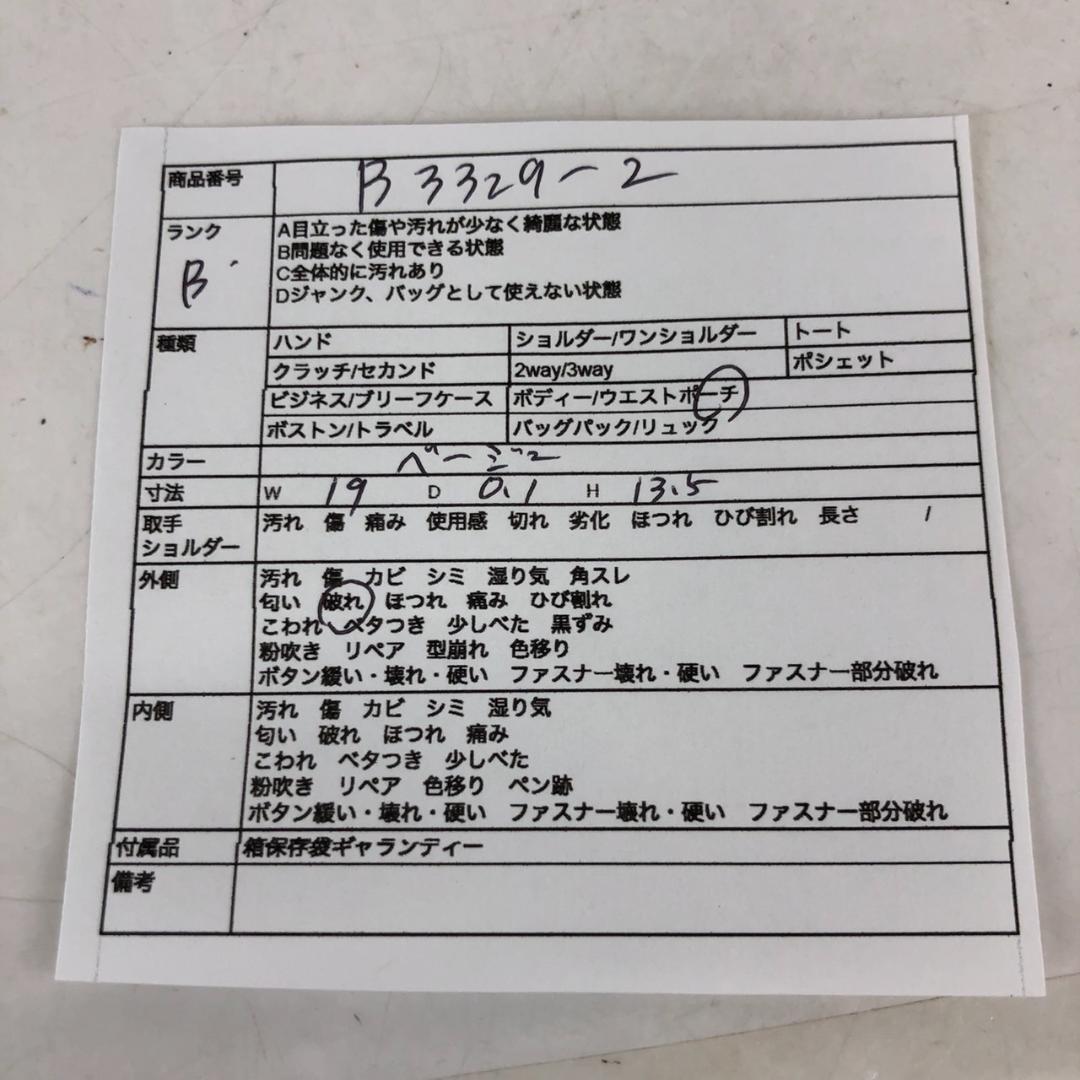 商品番号 B3329-2
ランク B
A目立った傷や汚れが少なく綺麗な状態
B問題なく使用できる状態
C全体的に汚れあり
Dジャンク、バッグとして使えない状態
種類 ハンド ショルダー/ワンショルダー トート
クラッチ/セカンド 2way/3way ポシェット
ビジネス/ブリーフケース ボディー/ウエストポーチ
ボストン/トラベル バッグパック/リュック
カラー ベージュ
寸法 W 19 D 0.1 H 13.5
取手 汚れ 傷 痛み 使用感 切れ 劣化 ほつれ ひび割れ 長さ /
ショルダー
外側 汚れ 傷 カビ シミ 湿り気 角スレ
匂い 破れ ほつれ 痛み ひび割れ
こわれ ベタつき 少しべた 黒ずみ
粉吹き リペア 型崩れ 色移り
ボタン緩い・壊れ・硬い ファスナー壊れ・硬い ファスナー部分破れ
内側 汚れ 傷 カビ シミ 湿り気
匂い 破れ ほつれ 痛み
こわれ ベタつき 少しべた
粉吹き リペア 色移り ペン跡
ボタン緩い・壊れ・硬い ファスナー壊れ・硬い ファスナー部分破れ
付属品 箱保存袋ギャランディー
備考